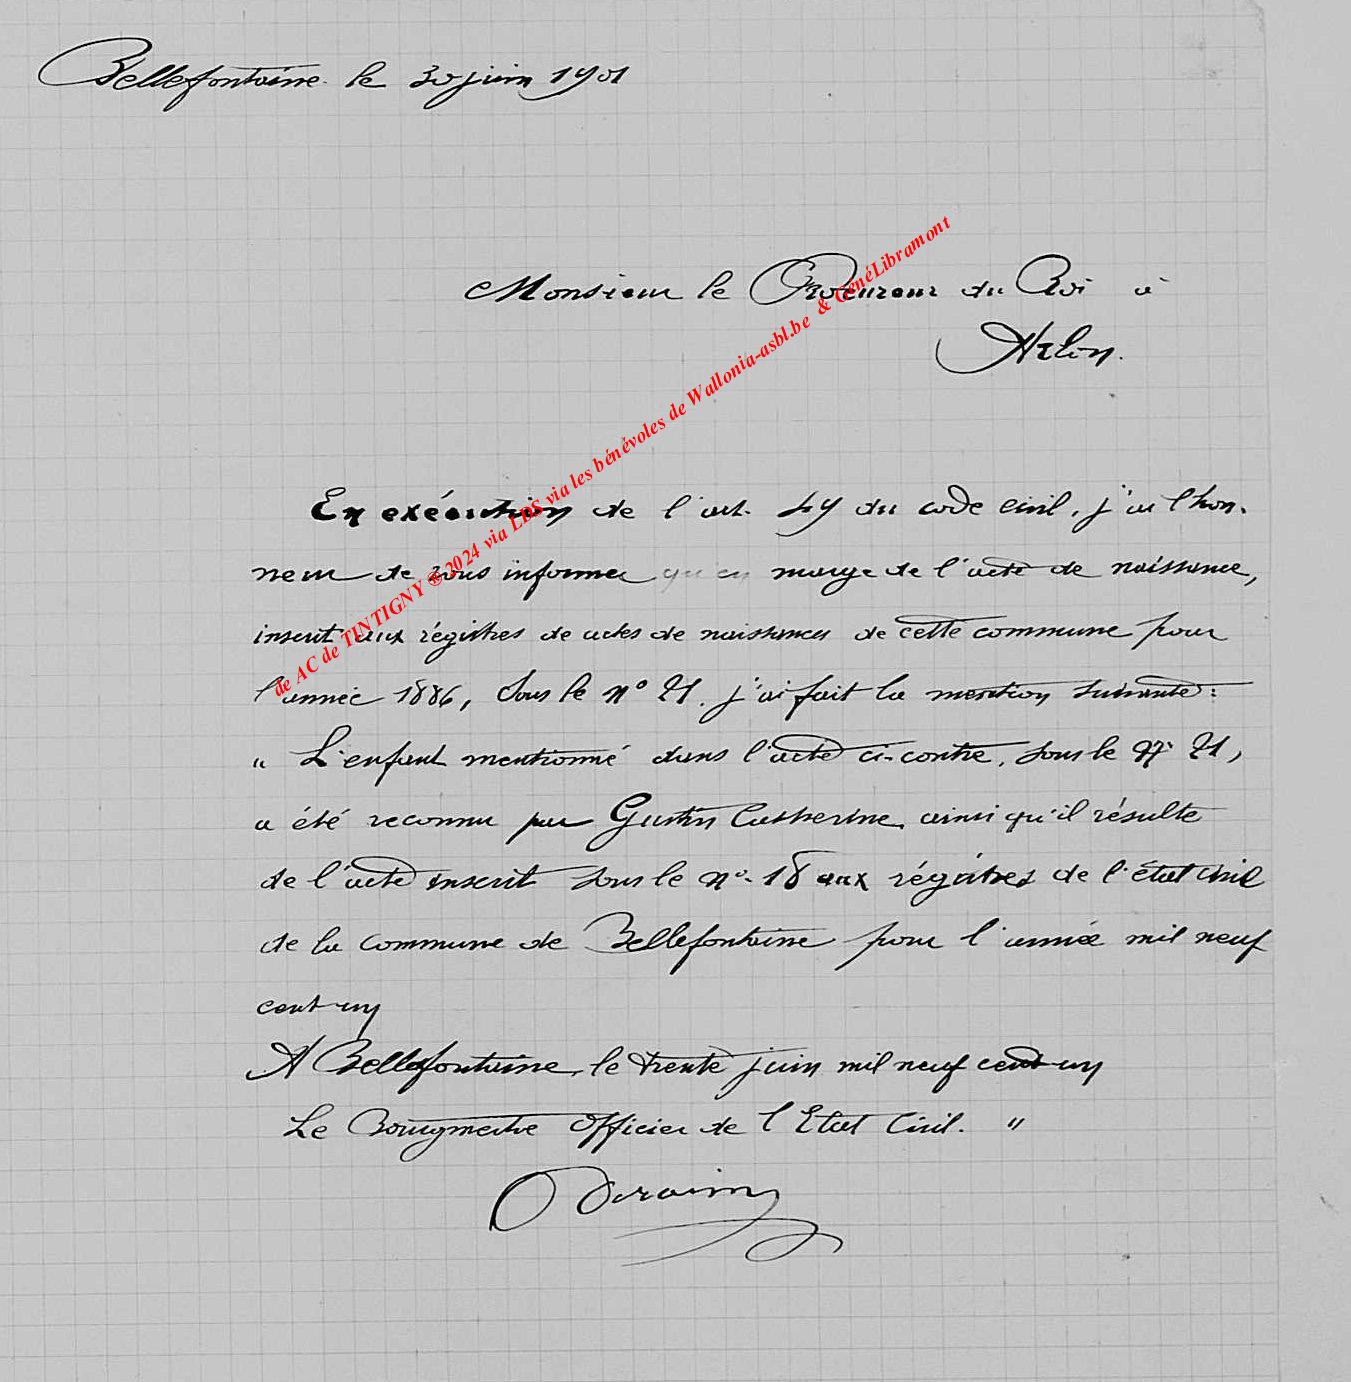 Bellefontaine le 30 juin 1901
Monsieur le Procureur du Roi à
Arlon.
En exécution de l'art. 49 du code civil, j'ai l'hon-
neur de vous informer qu'en marge de l'acte de naissance,
inscrit aux régistres de actes de naissances de cette commune pour
l'année 1886, sous le n° 21, j'ai fait la mention suivante:
" L'enfant mentionné dans l'acte ci-contre, sous le N° 21,
a été reconnu par Gustin Catherine, ainsi qu'il résulte
de l'acte inscrit sous le n° 18 aux régistres de l'état civil
de la commune de Bellefontaine pour l'année mil neuf
cent un
A Bellefontaine, le trente juin mil neuf cent un
Le Bourgmestre Officier de l'Etat Civil. "
de AC de TINTIGNY ® 2024 via LDS via les bénévoles de Wallonia-asbl.be & GénéLibramont